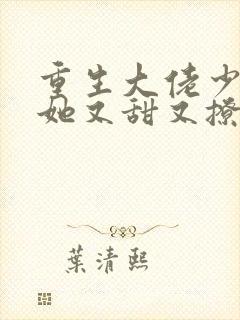 重生大佬少
她又甜又撩
葉清熙